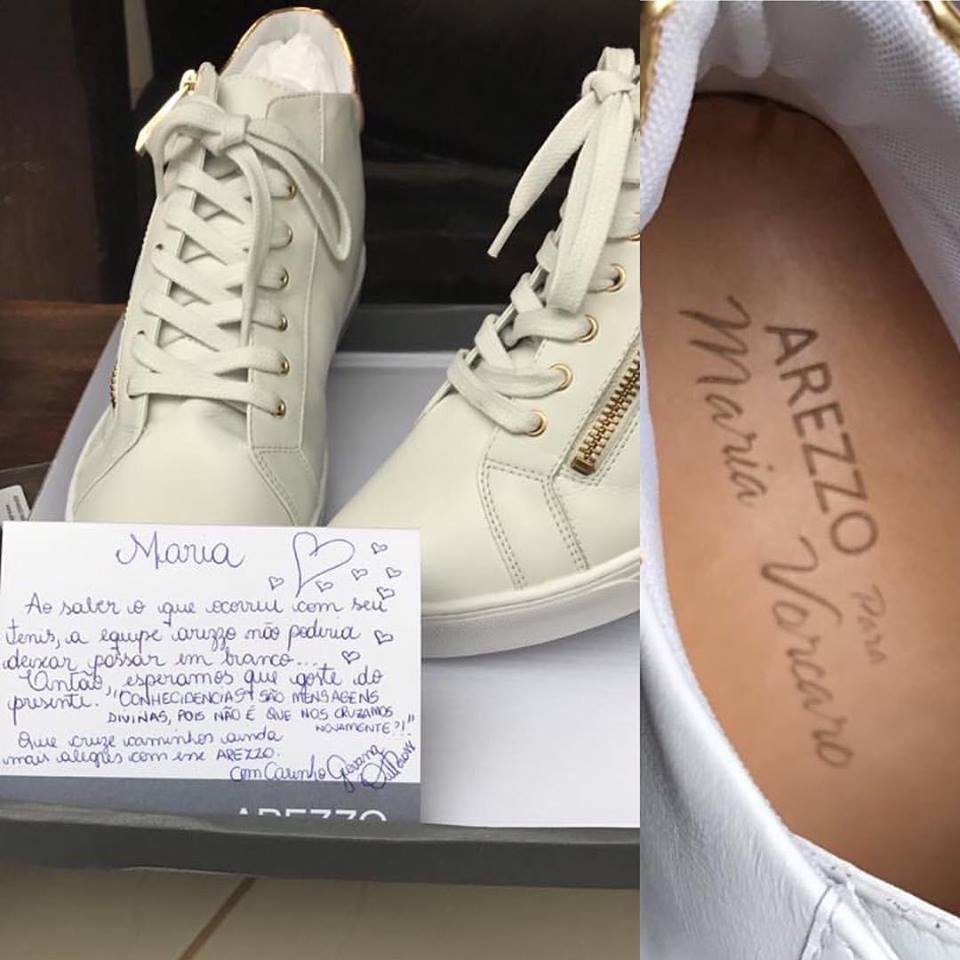 Maria
Ao saber o que ocorreu com seu
tenis, a equipe arezzo não poderia
deixar passar em branco...
Então, esperamos que goste do
presente. "CONHECIDENCIAS" SÃO MENSAGENS
DIVINAS, POIS NÃO É QUE NOS CRUZAMOS
NOVAMENTE?!"
Que cruze caminhos ainda
mais alegres com esse AREZZO.
com Carinho Geovana
AREZZO
AREZZO
Para
Maria Vorcaro